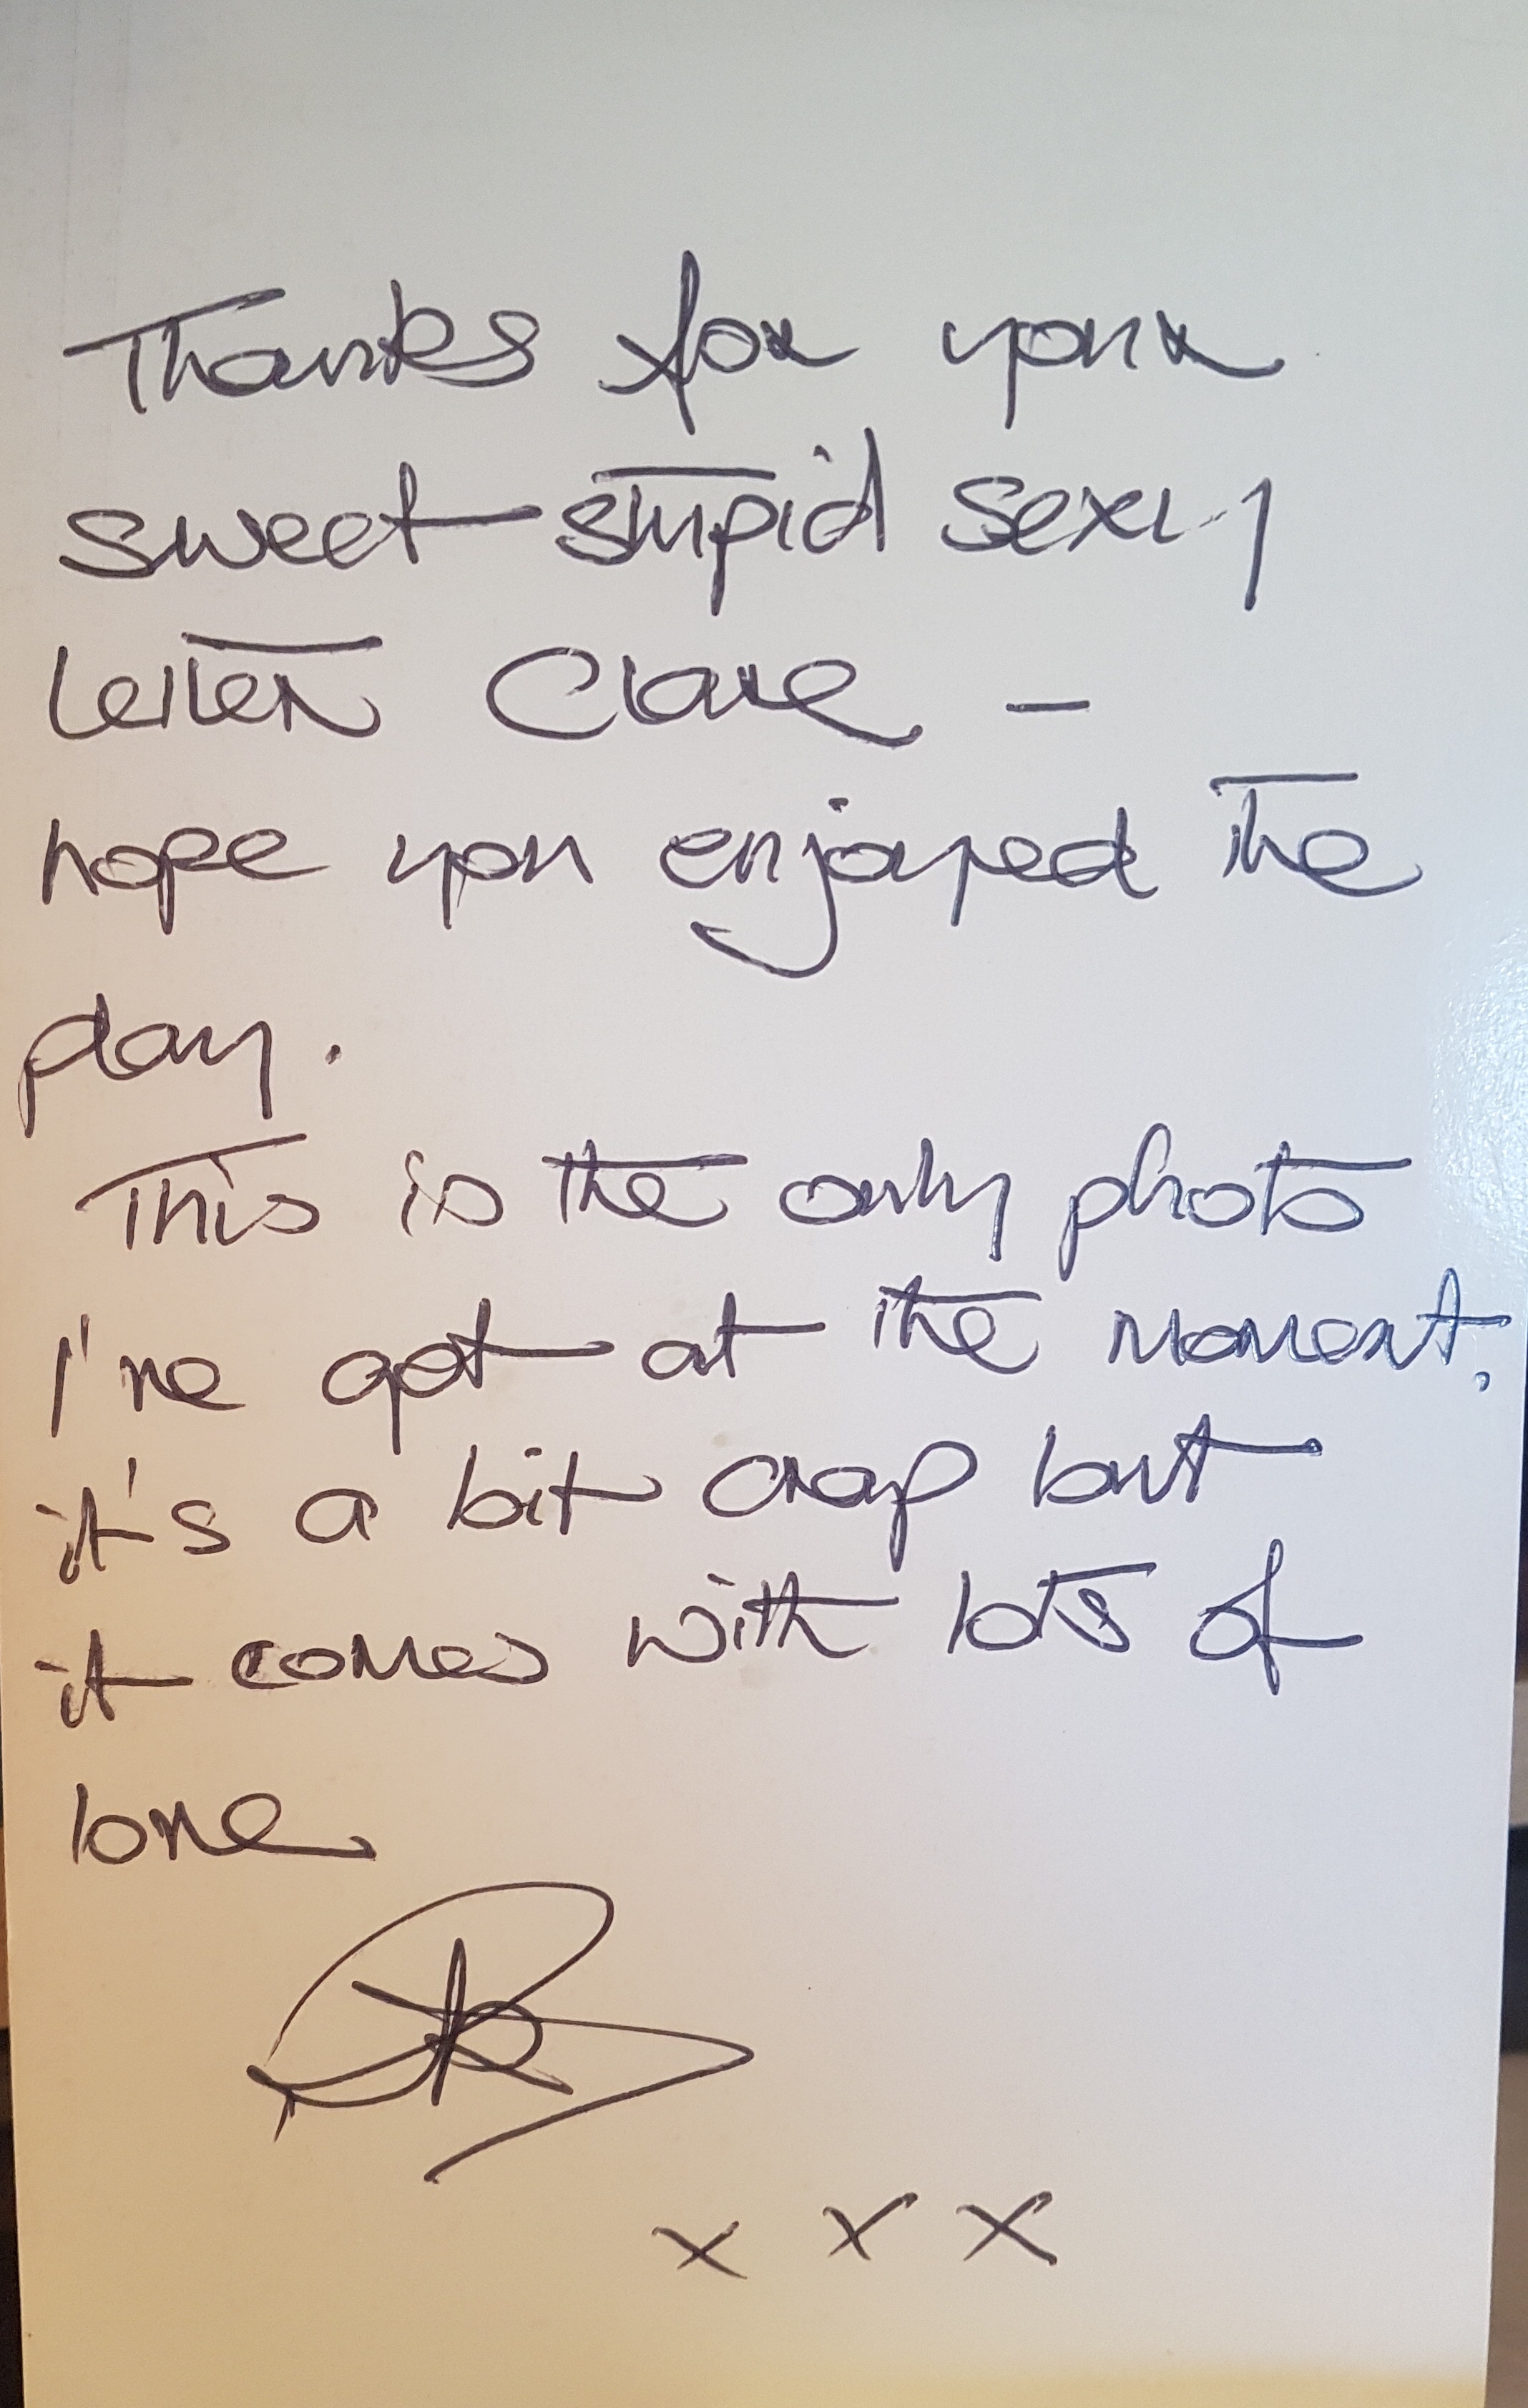 Thanks for your
sweet stupid sexy
letter Clare -
hope you enjoyed the
play.
This is the only photo
I've got at the moment,
it's a bit crap but
it comes with lots of
love
x x x